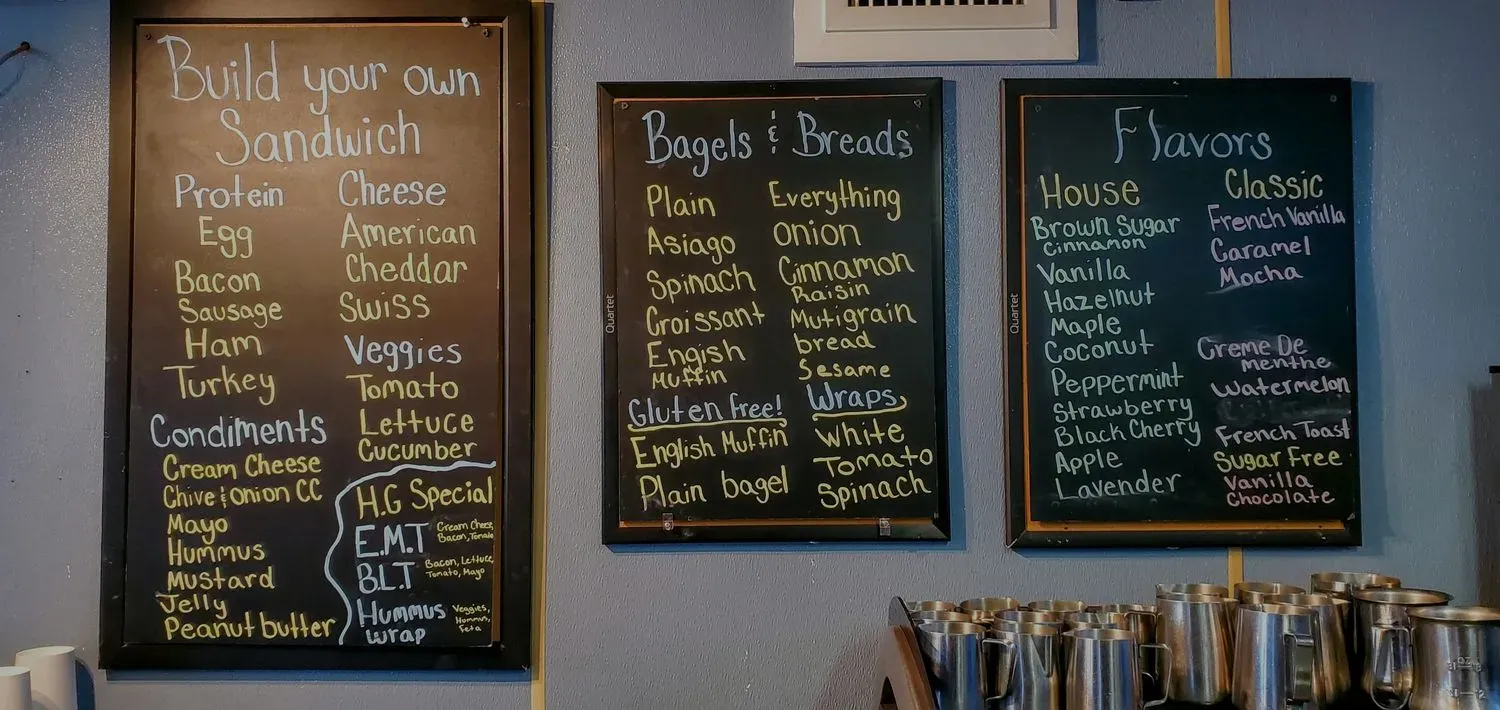 Build your own
Sandwich
Protein
Egg
Bacon
Sausage
Ham
Turkey
Condiments
Cream Cheese
Chive & onion CC
Mayo
Hummus
Mustard
Jelly
Peanut butter
Cheese
American
Cheddar
Swiss
Veggies
Tomato
Lettuce
Cucumber
H.G Special
E.M.T
Cream Cheese,
Bacon, Tomato
B.L.T
Bacon, Lettuce,
Tomato, Mayo
Hummus
wrap
Veggies,
Hummus,
Feta
Quartet
Bagels & Breads
Plain
Asiago
Spinach
Croissant
Engish
Muffin
Gluten free!
English Muffin
Plain bagel
Everything
Onion
Cinnamon
Raisin
Mutigrain
bread
Sesame
Wraps
White
Tomato
Spinach
Quartet
Flavors
House
Brown Sugar
Cinnamon
Vanilla
Hazelnut
Maple
Coconut
Peppermint
Strawberry
Black Cherry
Apple
Lavender
Classic
French Vanilla
Caramel
Mocha
Creme De
menthe
Watermelon
French Toast
Sugar Free
Vanilla
Chocolate